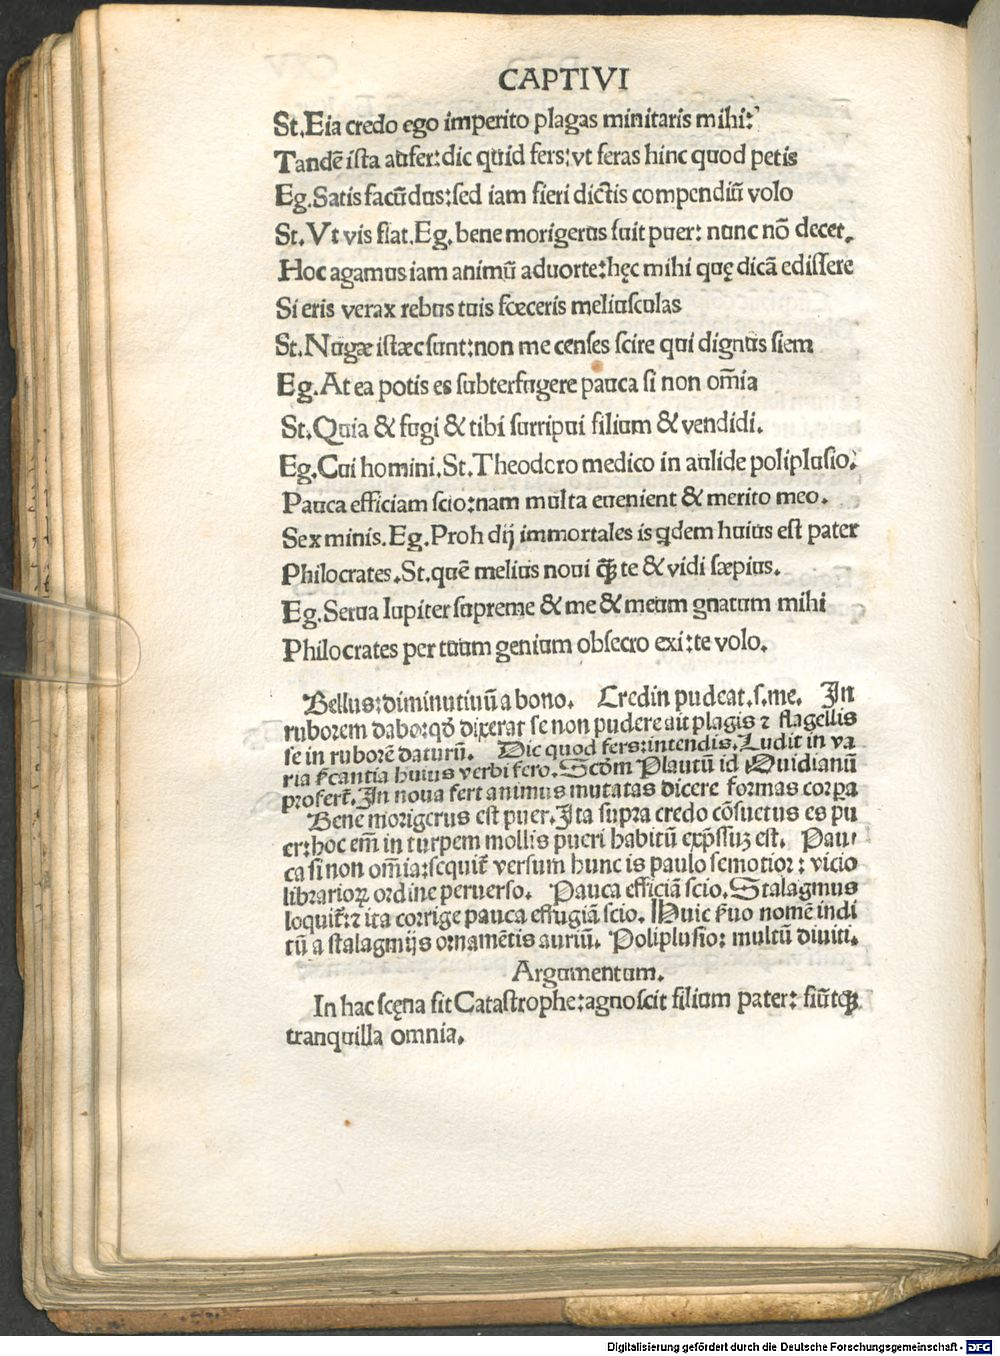 CAPTIVI
St.Eia credo ego imperito plagas minitaris mihi:
Tandē ista aufer:dic quid fers:vt feras hinc quod petis
Eg.Satis facūdus:sed iam fieri dictis compendiū volo
St.Vt vis fiat.Eg.bene morigerus fuit puer:nunc nō decet.
Hoc agamus iam animū aduorte:hęc mihi quę dicā edissere
Si eris verax rebus tuis fœceris meliusculas
St.Nugæ istæc sunt:non me censes scire qui dignus siem
Eg.At ea potis es subterfugere pauca si non om̄ia
St.Quia & fugi & tibi surripui filium & vendidi.
Eg.Cui homini.St.Theodoro medico in aulide poliplusio:
Pauca efficiam scio:nam multa euenient & merito meo.
Sex minis.Eg.Proh dij immortales is qdem huius est pater
Philocrates.St.quē melius noui q̄ te & vidi sæpius.
Eg.Serua Iupiter supreme & me & meum gnatum mihi
Philocrates per tuum genium obsecro exi:te volo.
Bellus:diminutiuū a bono. Credin pudeat.s.me. In
ruborem dabo:qđ dixerat se non pudere ait plagis ⁊ flagellis
se in ruborē daturū. Dic quod fers:intendis.Ludit in va
ria fcantia huius verbi fero.Scďm Plautū id Ouidianū
profert̄.In noua fert animus mutatas dicere formas corpa
Bene morigerus est puer.Ita supra credo cōsuetus es pu
er:hoc em̄ in turpem mollis pueri habitū exp̄ssuʒ est. Pau
ca si non om̄ia:sequit̄ versum hunc is paulo semotior:vicio
librarioꝝ ordine peruerso. Pauca efficiā scio.Stalagmus
loquit̄:⁊ ita corrige pauca effugiā scio.Huic ſuo nomē indi
tū a stalagmijs ornamētis auriū. Poliplusio:multū diuiti.
Argumentum.
In hac scęna fit Catastrophe:agnoscit filium pater:fiūtqꝫ
tranquilla omnia.
Digitalisierung gefördert durch die Deutsche Forschungsgemeinschaft - DFG